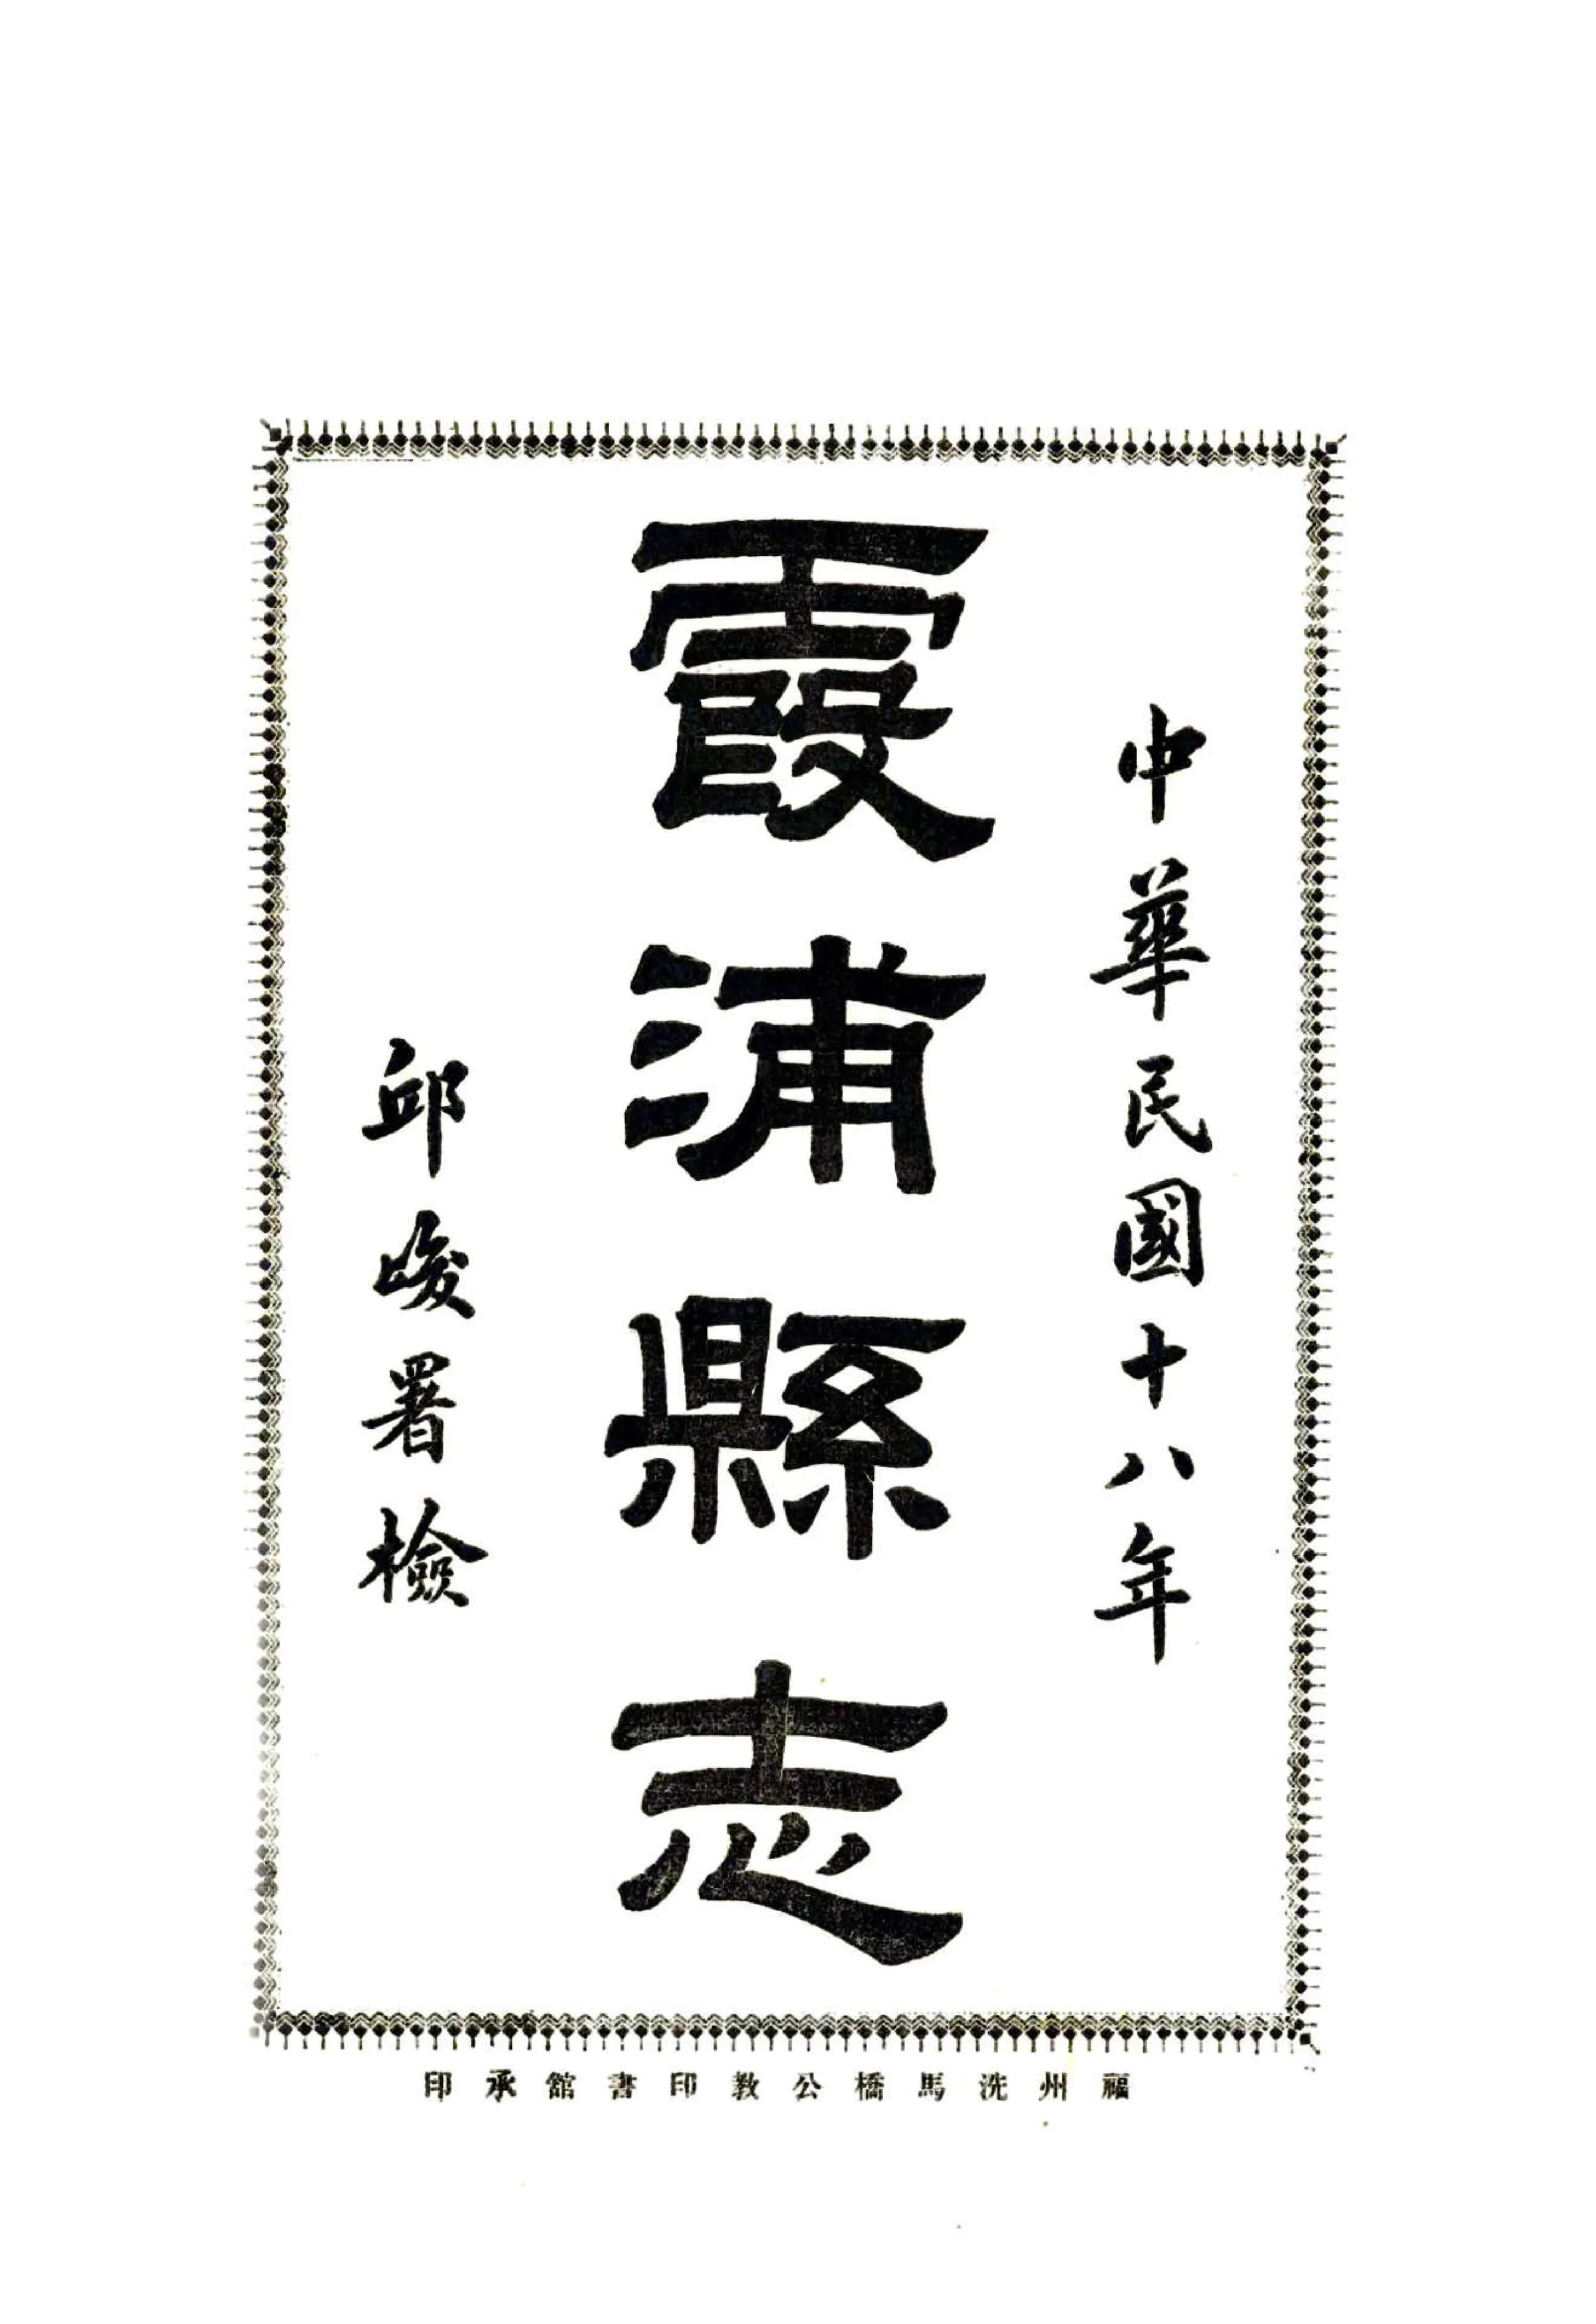 中華民國十八年
霞浦縣志
邱峻署檢
福州洗馬橋公教印書館承印